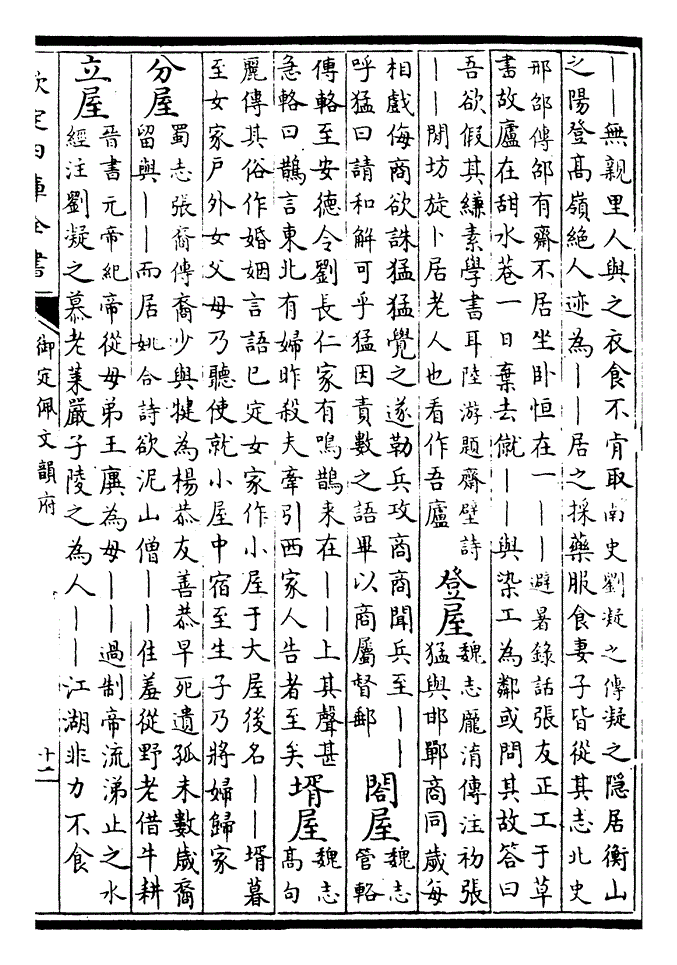 ——無親里人與之衣食不肯取南史劉凝之傳凝之隱居衡山
之陽登高嶺絶人迹為——居之採藥服食妻子皆從其志北史
邢邵傳邵有齋不居坐卧恒在一——避暑錄話張友正工于草
書故廬在甜水巷一日棄去僦——與染工為鄰或問其故答曰
吾欲假其縑素學書耳陸游題齋壁詩
——閒坊旋卜居老人也看作吾廬
登屋
魏志龎淯傳注初張
猛與邯鄲商同歲每
相戲侮商欲誅猛猛覺之遂勒兵攻商商聞兵至——
呼猛曰請和解可乎猛因責數之語畢以商屬督郵
閣屋
魏志
管輅
傳輅至安德令劉長仁家有鳴鵲来在——上其聲甚
急輅曰鵲言東北有婦昨殺夫牽引西家人告者至矣
壻屋
魏志
髙句
麗傳其俗作婚姻言語已定女家作小屋于大屋後名——壻暮
至女家户外女父母乃聽使就小屋中宿至生子乃將婦歸家
分屋
蜀志張裔傳裔少與犍為楊恭友善恭早死遺孤未數歲裔
留與——而居姚合詩欲泥山僧——住羞從野老借牛耕
立屋
晉書元帝紀帝從母弟王廙為母——過制帝流涕止之水
經注劉凝之慕老萊嚴子陵之為人——江湖非力不食
欽定四庫全書
御定佩文韻府
十二